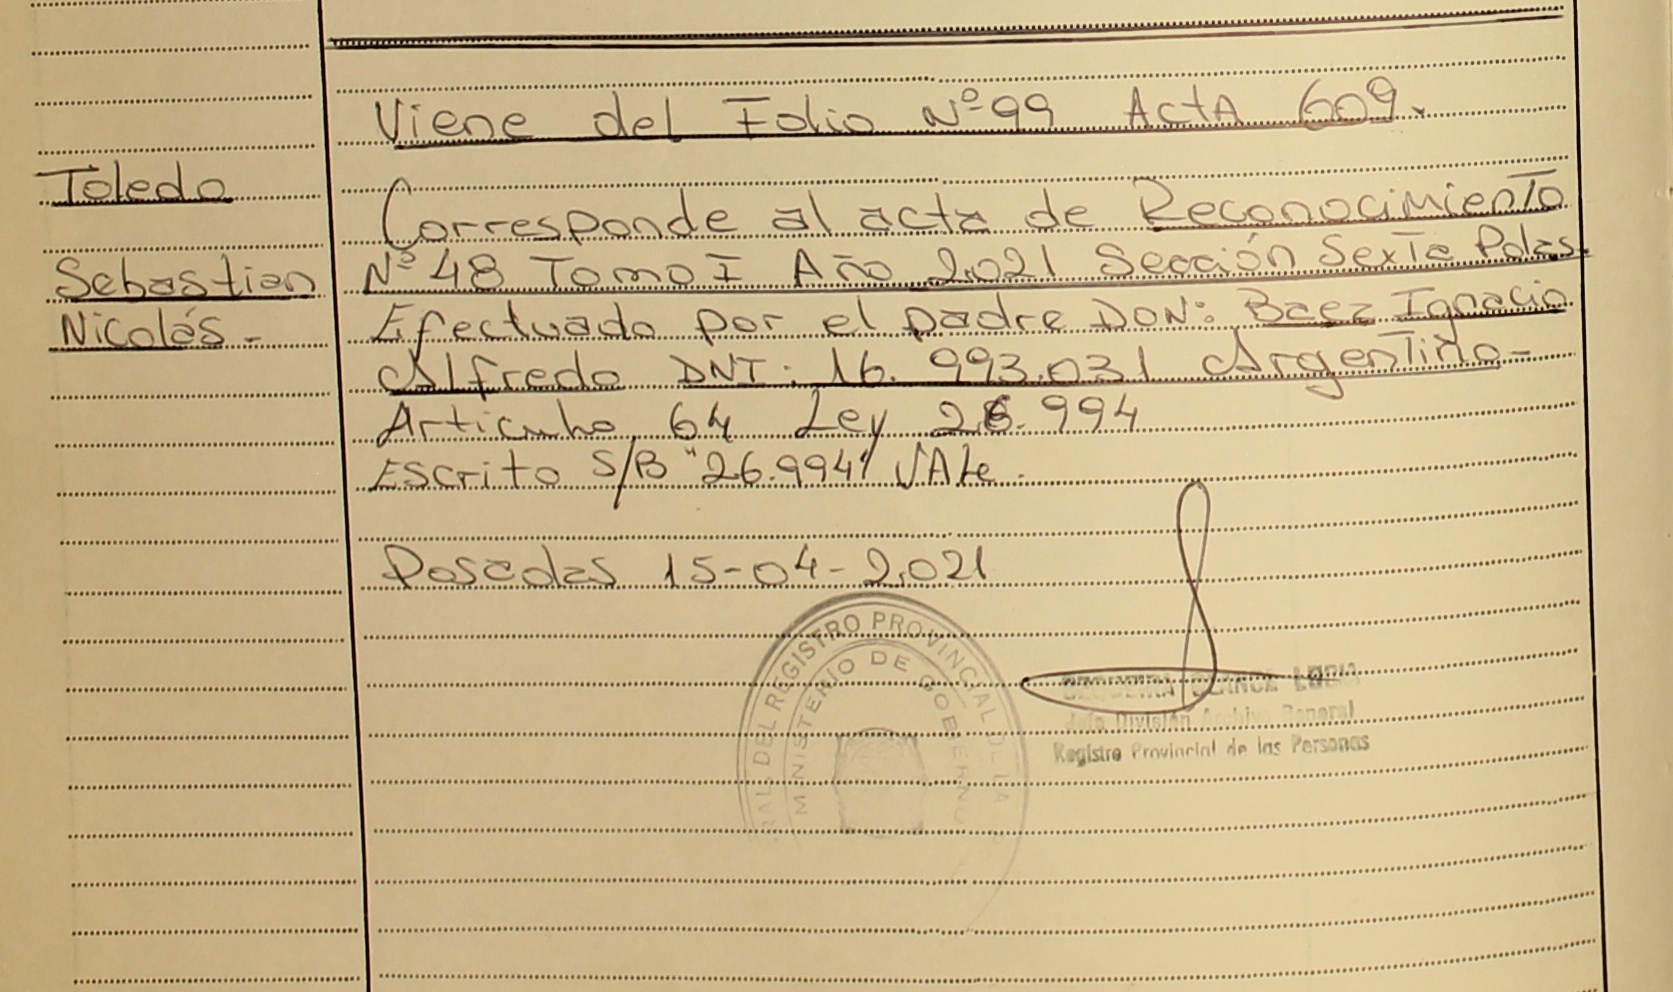 Viene del Folio Nº 99 ActA 609.
Toledo
Corresponde al acta de Reconocimiento
Sebastian
Nº 48 Tomo I Año 2.021 Sección Sexta Pdas.
Nicolás -
Efectuado por el padre DON: Baez Ignacio
Alfredo DNI: 16.993.031 Argentino -
Articulo 64 Ley 26.994
Escrito S/B "26.994" VALe.
Posadas 15-04-2.021
DEL REGISTRO PROVINCIAL DE LA
MINISTERIO DE GOBIERNO
División Archivo General
Registro Provincial de las Personas